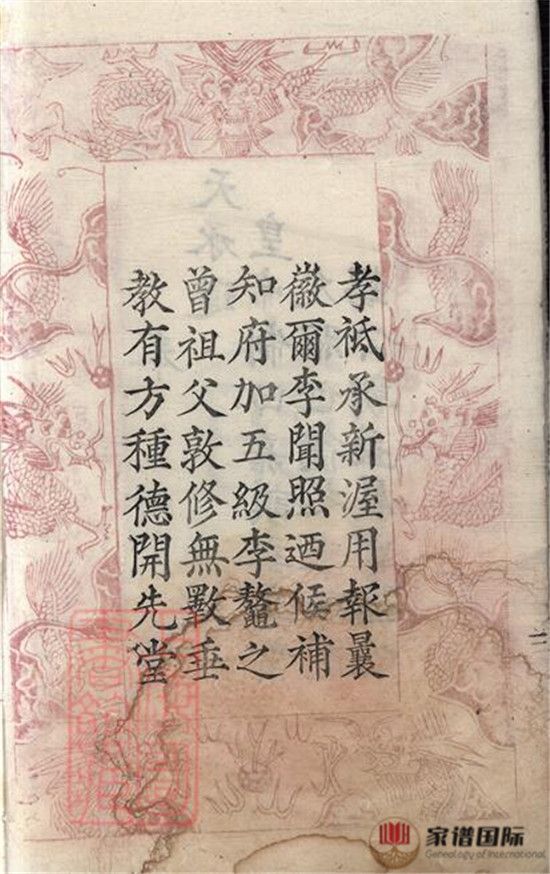 孝祗承新渥用報曩
徽爾李聞照迺候補
知府加五級李鼇之
曾祖父敦修無斁垂
教有方種德開先堂
天
皇
水
二
家谱国际
Genealogy of International